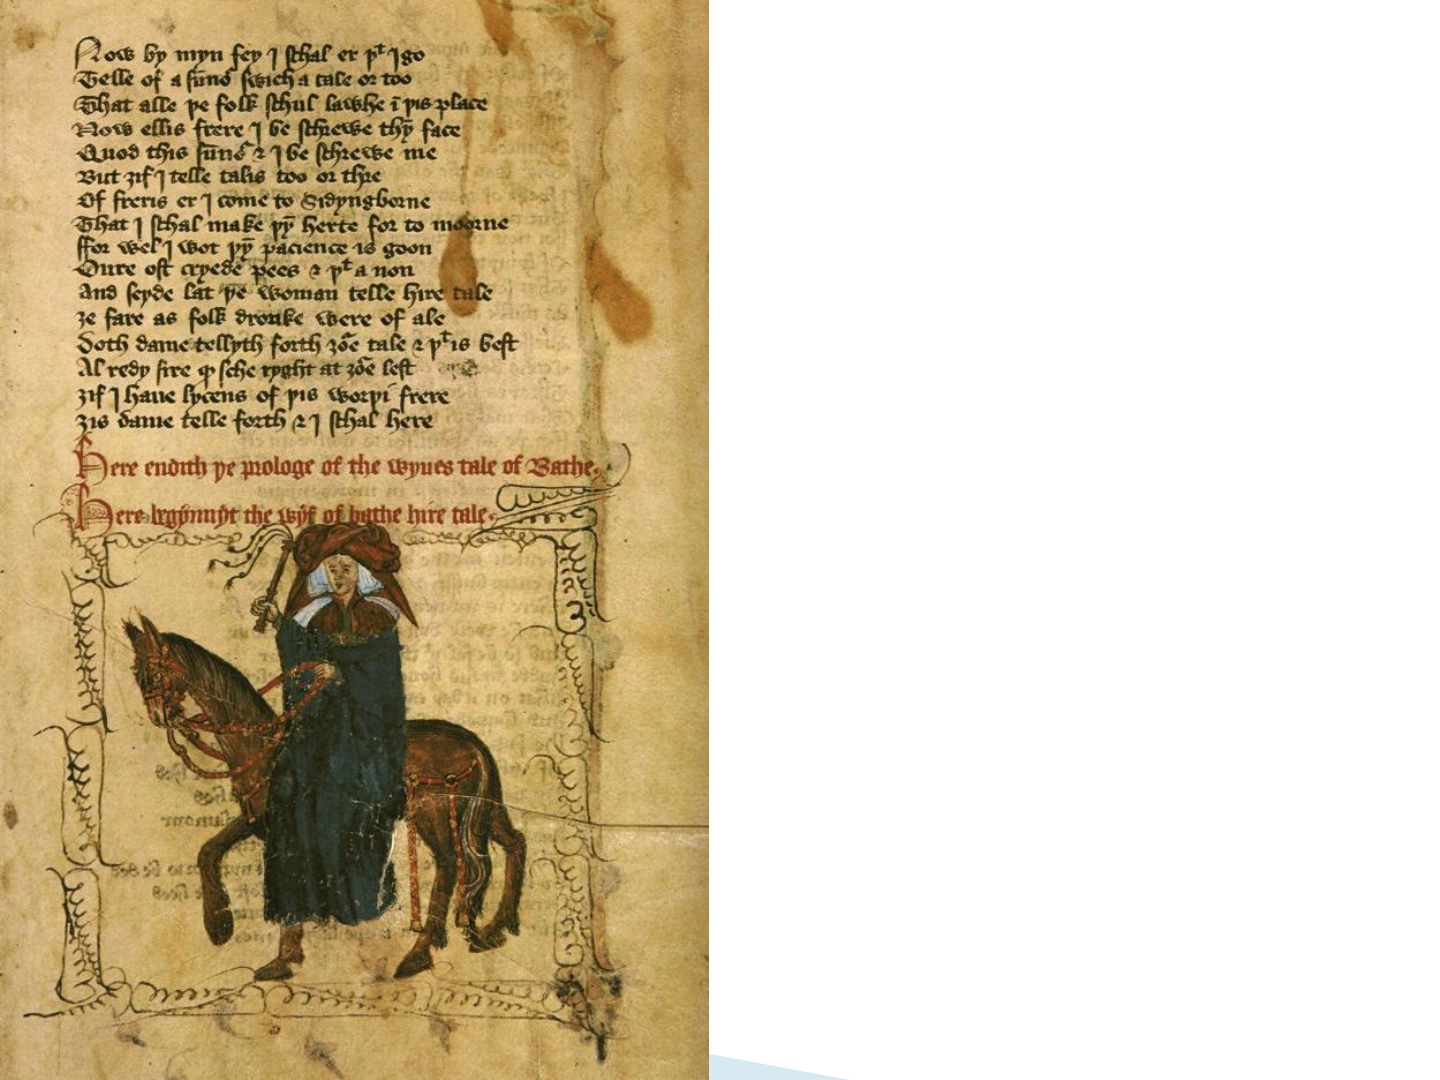 Now by myn fey I schal er þͭ I go
Telle of a sūnoʳ swich a tale or too
That alle þe folk schul lawhe ī þis place
Now ellis frere I be schrewe thȳ face
Quod this sūnoʳ & I be schrewe me
But ȝif I telle talis too or thre
Of freris er I come to Sidyngborne
That I schal make þȳ herte for to moorne
ffor wel I wot þȳ pacience is goon
Oure ost cryede pees & þͭ a non
And seyde lat þe woman telle hire tale
ȝe fare as folk dronke were of ale
Doth dame tellyth forth ȝoʳe tale & þͭ is best
Al redy sire qͦ sche ryght at ȝoʳe lest
ȝif I haue lycens of þis worþi frere
ȝis dame telle forth & I schal here
Here endith þe prologe of the wyues tale of Bathe.
Here begynnyt the wyf of bathe hire tale.